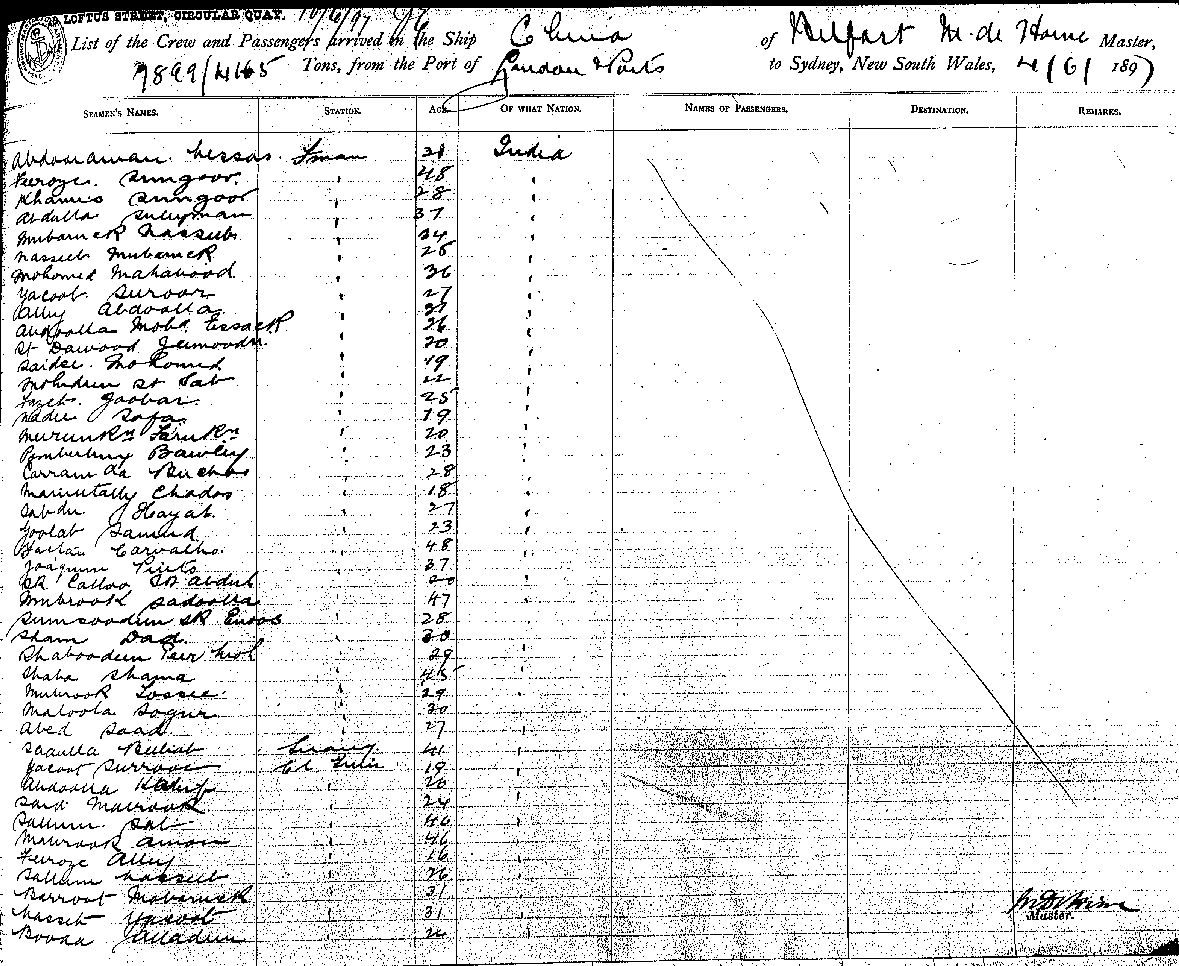 LOFTUS STREET, CIRCULAR QUAY. 10/6/97
List of the Crew and Passengers arrived in the Ship China of Belfast M. de Horne Master,
7899/4165 Tons, from the Port of London & Ports to Sydney, New South Wales, 4/6/1897
SEAMEN'S NAMES. STATION. AGE OF WHAT NATION. NAMES OF PASSENGERS. DESTINATION. REMARKS.
Abdoorawan Nessas Fman 31 India
Feeroze Sungoor 48 "
Khamis Sungoor 28 "
Abdulla Suleyman 37 "
Mubaruck Nasseeb 34 "
Nasseeb Mubaruck 25 "
Mohomed Mahawood 36 "
Yacoot Suroor 27 "
Ally Abdoolla 27 "
Abdoolla Mohd Essack 26 "
Sk Dawood Jeemoodn 20 "
Saidee Mohomed 19 "
Mohideen Sk Sab 22 "
Goobar 25 "
Nadee Safa 19 "
20 "
Bawley 23 "
28 "
Chados 18 "
Sabdu Hayat 27 "
Goolab Samud 23 "
Carvalho 48 "
Joaquim Pinto 37 "
Sk Calloo Sk Abdul 20 "
Mubrook Sadoolla 47 "
Sumsoodeen Sk Enoos 28 "
Sham Dad 30 "
Shaboodeen Peer Mohd 29 "
Shaba Shama 45 "
Mubrook 29 "
Maloola 30 "
Abed Saad 27 "
Saaulla Bullal Serang 41 "
Yacoot Surroor 19 "
Abdoolla 20 "
Said Mabrook 24 "
Sallum Sal 46 "
Mabrook Aman 46 "
Feroze Ally 16 "
Sallem Nasseeb 26 "
Barroot Mobaruck 31 "
Nasseb Yacoot 31 "
Booda Jalladeen 26 "
Master.